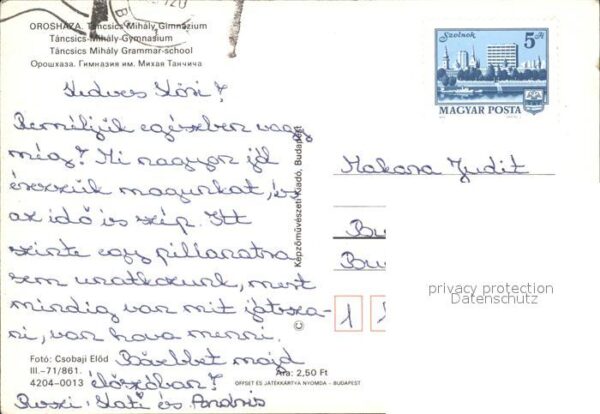 OROSHÁZA. Táncsics Mihály Gimnázium
Táncsics-Mihály-Gymnasium
Táncsics Mihály Grammar-school
Орошхаза. Гимназия им. Михая Танчича
Kedves
Reméljük egészben vagy
még? Mi nagyon jól
érezzük magunkat, és
az idő is szép. Itt
szinte egy pillanatra
sem unatkozunk, mert
mindig van mit játsza-
ni, van hova menni.
Bővebbet majd
élőszóban!
Rozi, Kati és András
Fotó: Csobaji Előd
III.-71/861.
4204-0013
Ára: 2,50 Ft
OFFSET ÉS JÁTÉKKÁRTYA NYOMDA - BUDAPEST
© Képzőművészeti Kiadó, Budapest
Szolnok
5 Ft
MAGYAR POSTA
Makara Judit
Bu
Bu
1
privacy protection
Datenschutz